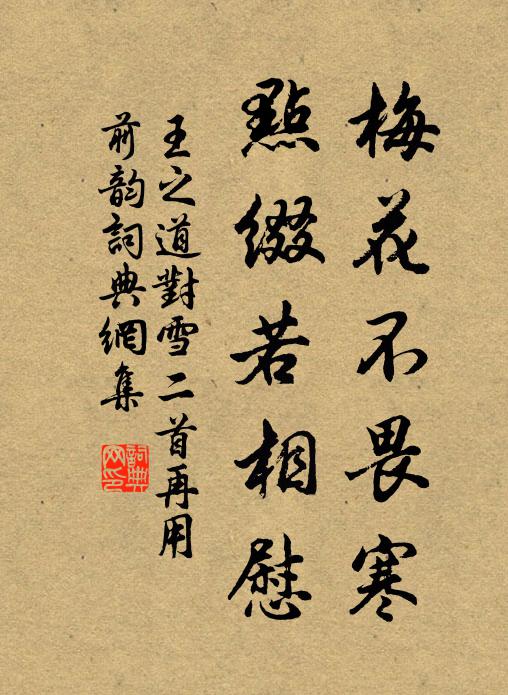 梅花不畏寒
點綴若相慰
王之道對雪二首再用
前韵詞典網集
詞典网印